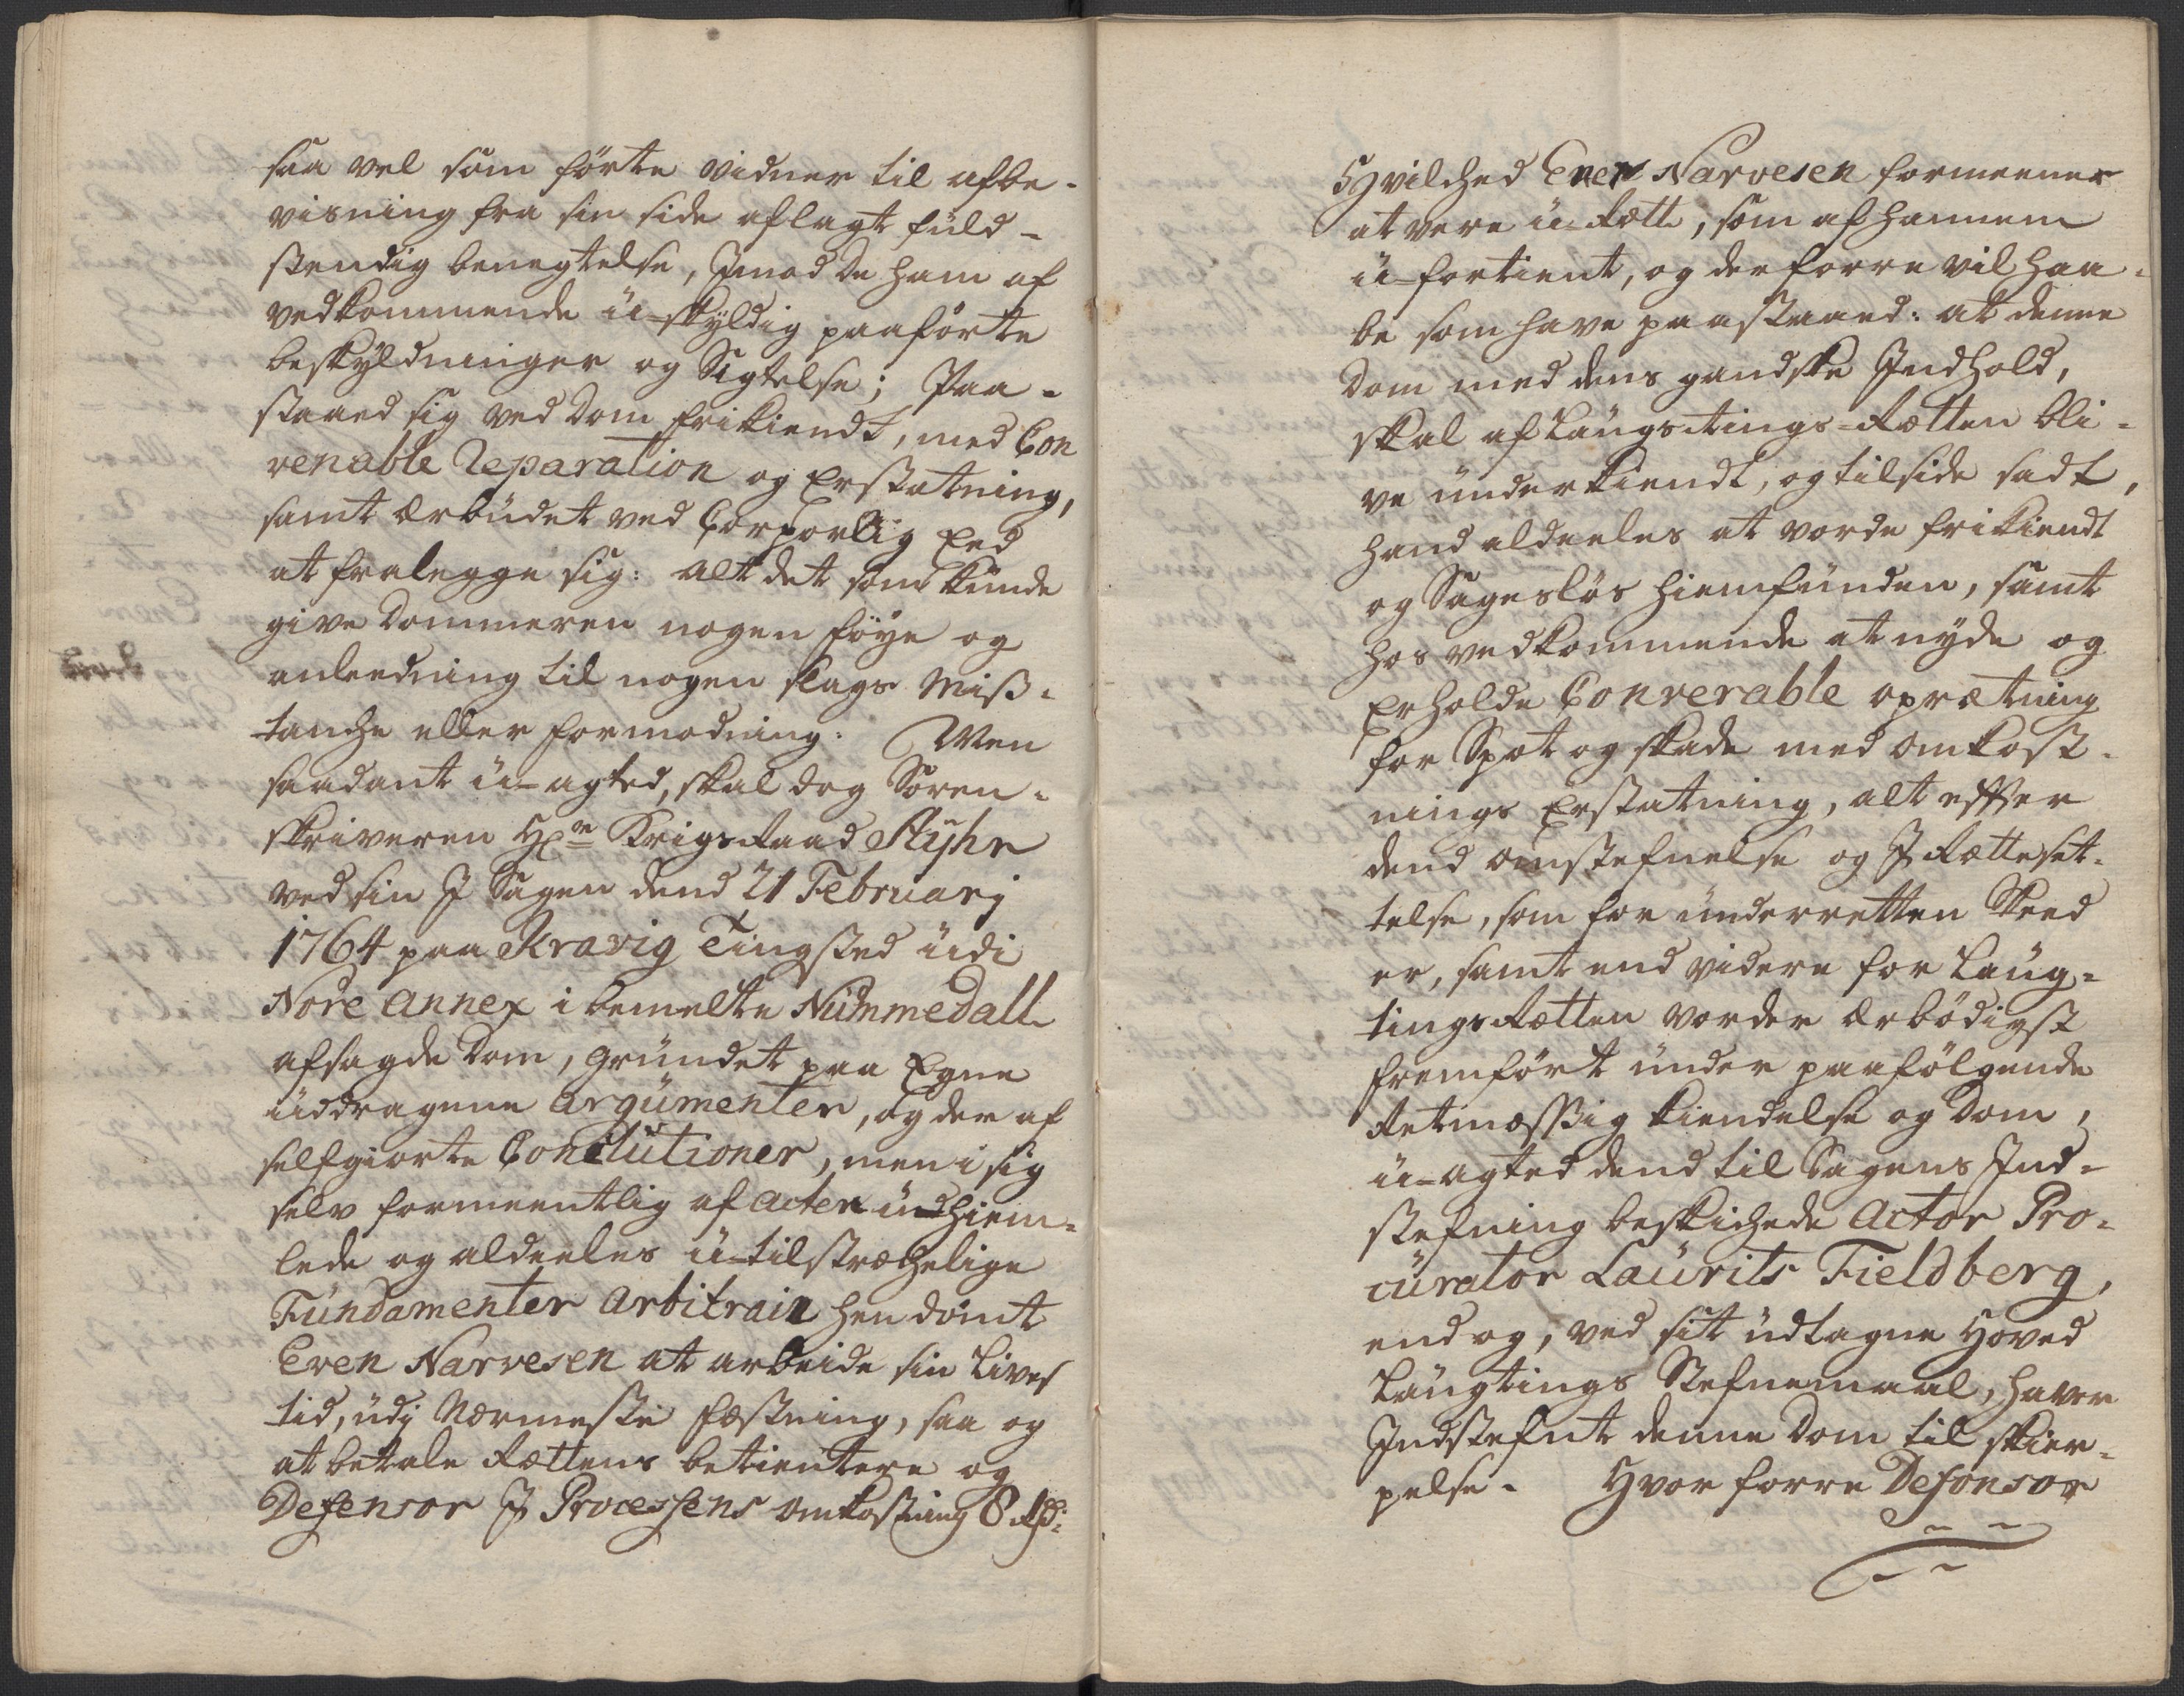 saa vel som förte vidner til afbe-
visning fra sin side aflagt fuld-
stendig benegtelse, Jmod de ham af
vedkommende ü-skyldig paaförte
beskyldninger og Sigtelse; Paa-
staaed sig ved Dom frikiendt, med Con
venable Reparation og Erstatning,
samt ærbüdet ved Corporlig Eed
at fralegge sig: alt det som künde
give Dommeren nogen föye og
anleedning til nogen slags Miß-
tanche eller formodning. Men
saadant ü-agted, skal dog Soren-
skriveren Hr Krigs Raad Ruhr
ved sin J Sagen dend 21 Februarj
1764 paa Kravig Tingsted üdi
Nore annex i bemelte Nummedall
afsagde Dom, gründet paa Egne
üddragene Argümenter, og der af
selfgiorte Conclutioner, men i sig
selv formeentlig af acten ündhiem-
lede og aldeeles ü-tilstræchelige
Fündamenter Arbitrair hen dömt
Even Narvesen at arbeide sin Lives
tid, üdj Nærmeste fæstning, saa og
at betale Rættens betientere og
Defensor J Processens omkostning 8 Rd:
Hvilched Even Narvesen formeener
at vere ü-Rætt, som af hannem
ü-fortient, og der forre vil haa-
be som have paastaaed: at denne
Dom med dens gandske Jndhold,
skal af Laugtings-Rætten bli-
ve ünderkiendt, og tilside sadt,
hand aldeeles at vorde frikiendt
og Sagesløs hiemfünden, samt
hos vedkommende at nyde og
Erholde Convenable oprætning
for Spot og skade med omkost-
nings Erstatning, alt effter
dend omstefnelse og J Rættesæt-
telse, som for ünderretten Skeed
er, samt end videre for Laug-
tings Rætten vorder ærbödigst
fremfört ünder paafölgende
Retmæssig kiendelse og Dom,
ü-agted dend til Sagens Jnd-
stefning beskichede Actor Pro-
cürator Laürits Fieldberg,
end og, ved sit üdtagne Hoved
Laugtings Stefnemaal, haver
Jndstefnt denne Dom til skier-
pelse. Hvor forre Defensor